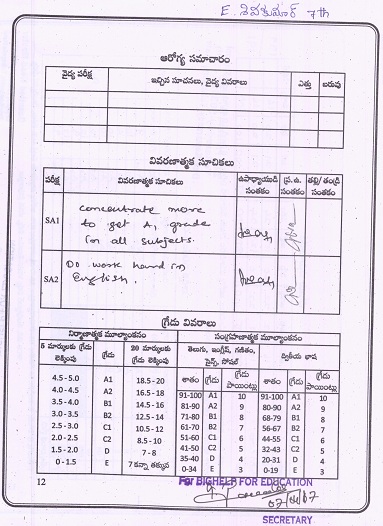 E. శివకుమార్ 7th
ఆరోగ్య సమాచారం
వైద్య పరీక్ష ఇచ్చిన సూచనలు, వైద్య వివరాలు ఎత్తు బరువు
వివరణాత్మక సూచికలు
పరీక్ష వివరణాత్మక సూచికలు ఉపాధ్యాయుడి సంతకం ప్ర.ఉ. సంతకం తల్లి/తండ్రి సంతకం
SA1 Concentrate more
to get A1 grade
in all subjects.
SA2 Do work hard in
English.
గ్రేడు వివరాలు
నిర్మాణాత్మక మూల్యాంకనం సంగ్రహణాత్మక మూల్యాంకనం
5 మార్కులకు లెక్కింపు గ్రేడు 20 మార్కులకు గ్రేడు లెక్కింపు తెలుగు, ఇంగ్లీష్, గణితం, సైన్స్, సోషల్ ద్వితీయ భాష
శాతం గ్రేడు గ్రేడు పాయింట్లు శాతం గ్రేడు గ్రేడు పాయింట్లు
4.5 - 5.0 A1 18.5 - 20 91-100 A1 10 91-100 A1 10
4.0 - 4.5 A2 16.5 - 18 81-90 A2 9 80-90 A2 9
3.5 - 4.0 B1 14.5 - 16 71-80 B1 8 68-79 B1 8
3.0 - 3.5 B2 12.5 - 14 61-70 B2 7 56-67 B2 7
2.5 - 3.0 C1 10.5 - 12 51-60 C1 6 44-55 C1 6
2.0 - 2.5 C2 8.5 - 10 41-50 C2 5 32-43 C2 5
1.5 - 2.0 D 7 - 8 35-40 D 4 20-31 D 4
0 - 1.5 E 7 కన్నా తక్కువ 0-34 E 3 0-19 E 3
12 For BIGHELP FOR EDUCATION
SECRETARY